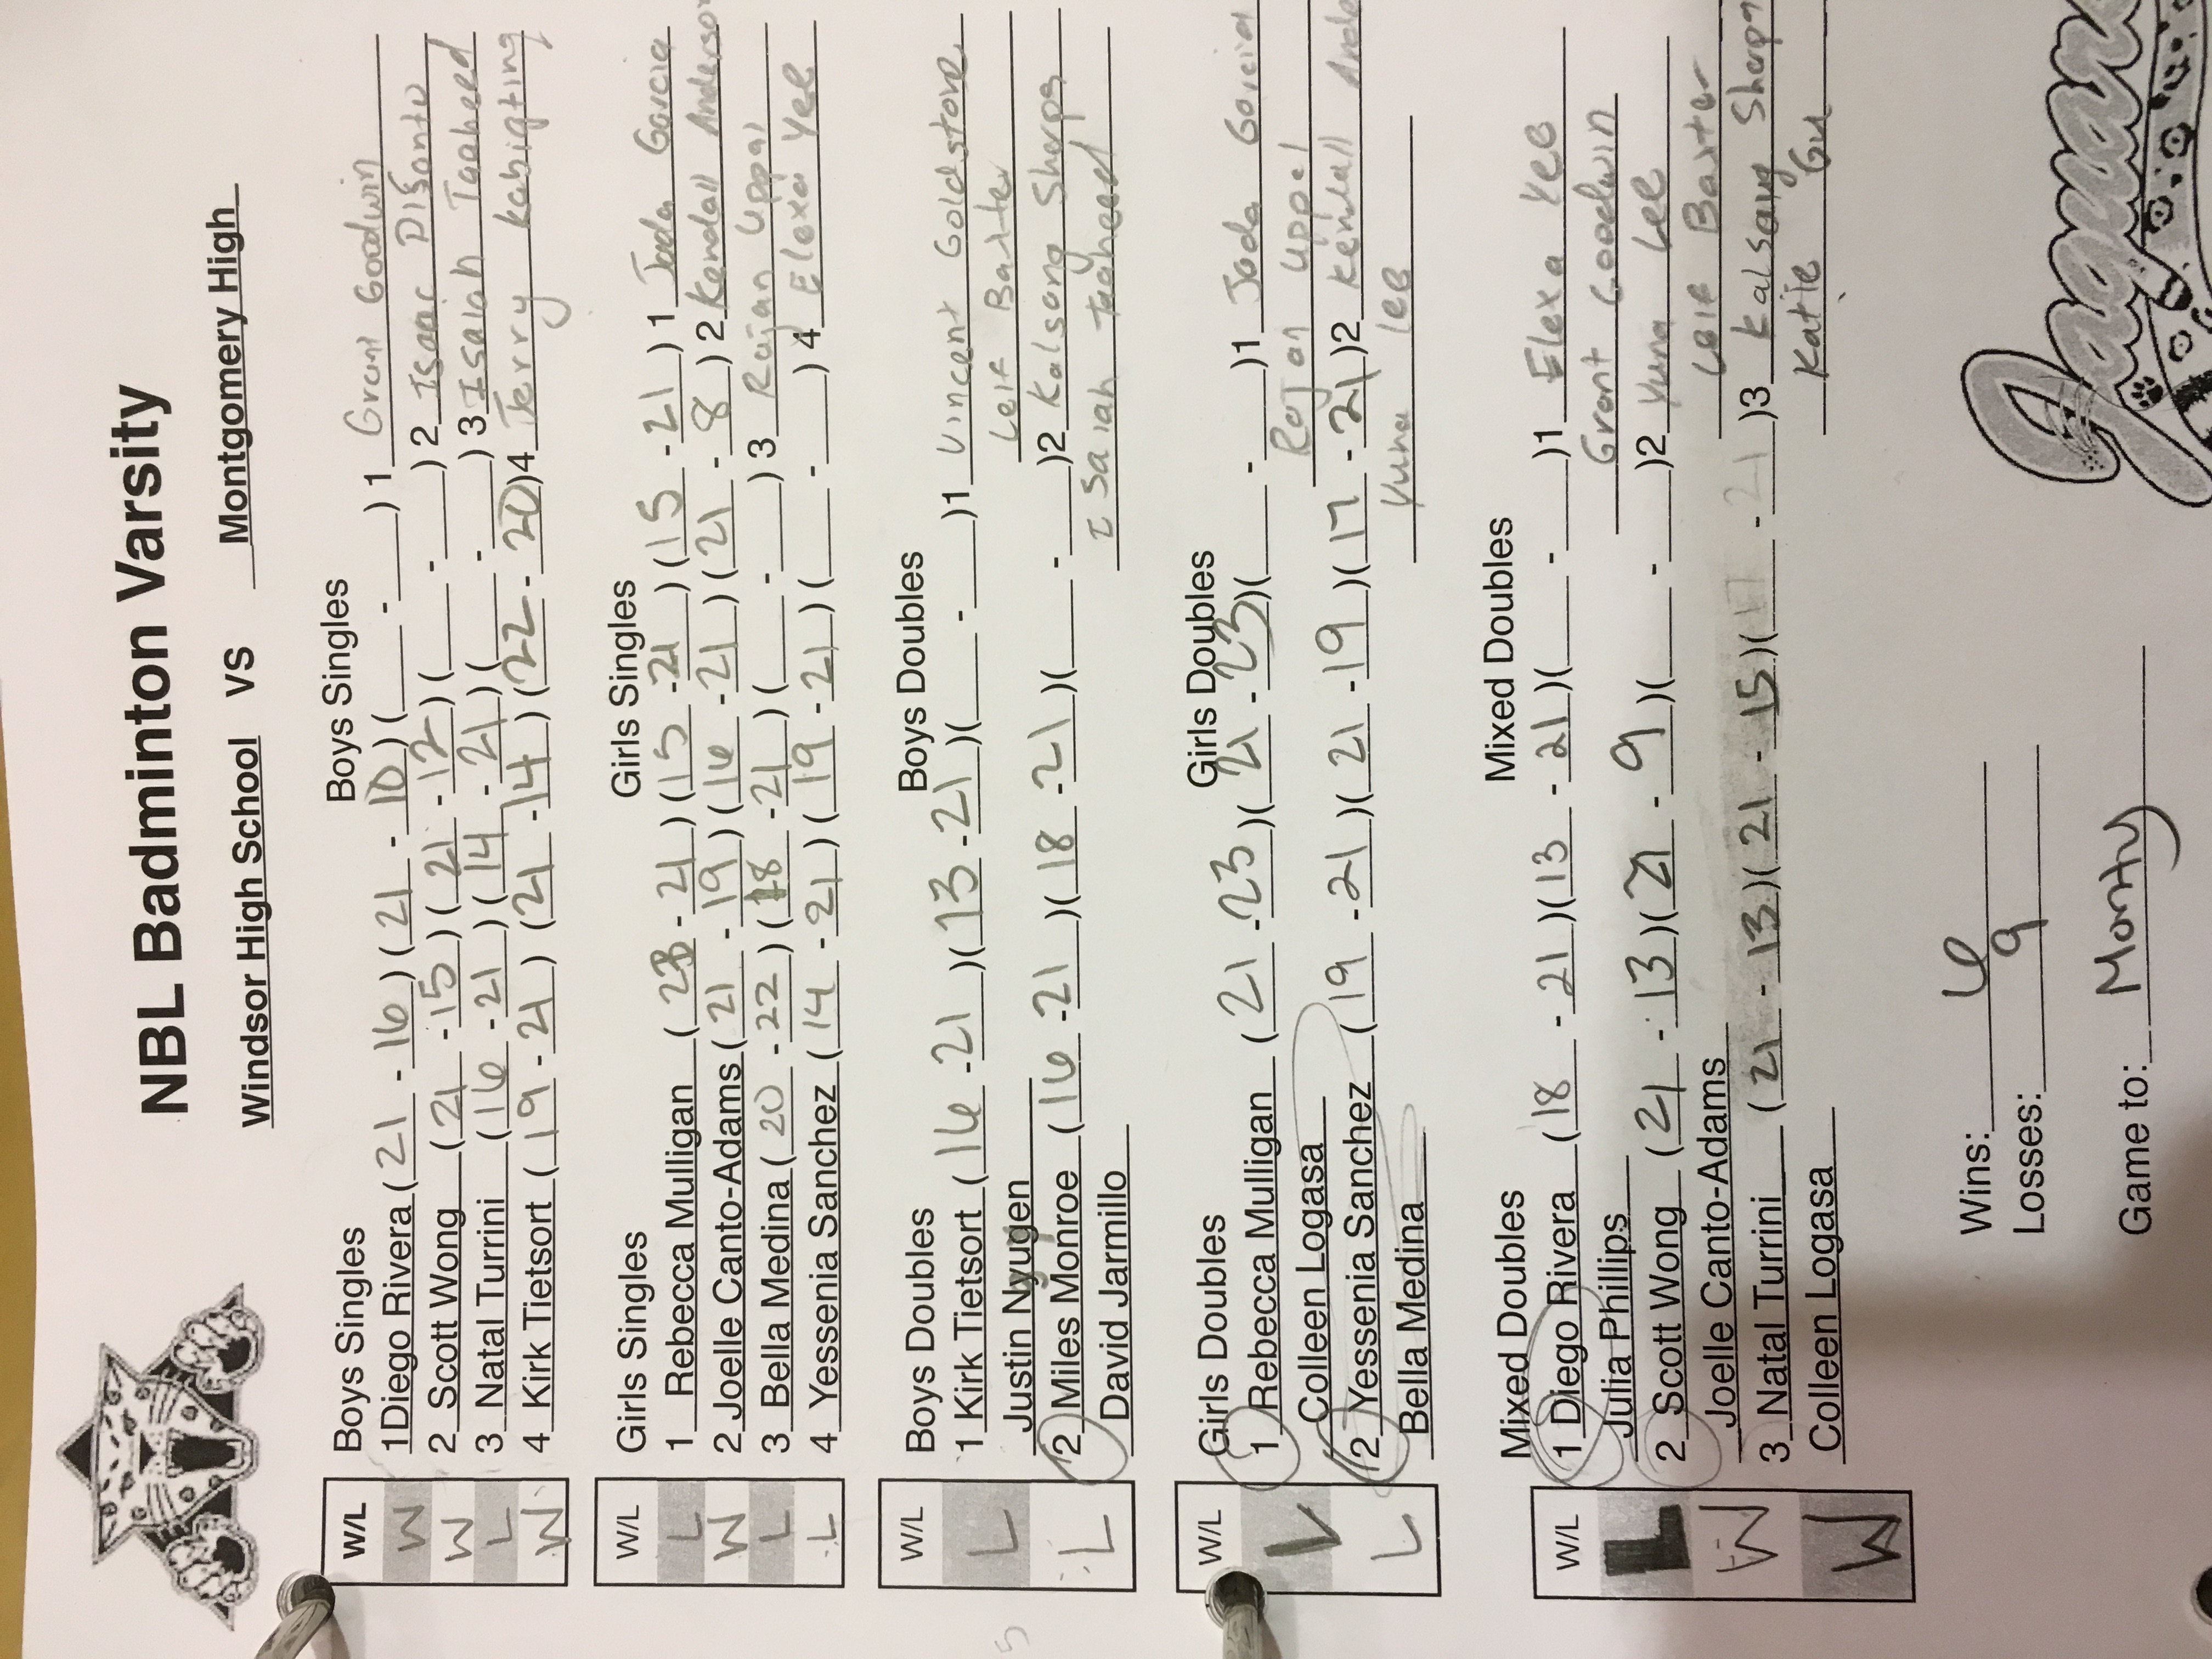 NBL Badminton Varsity
Windsor High School vs Montgomery High
Boys Singles Boys Singles
W/L
W 1 Diego Rivera (21 - 16) (21 - 10) (___ - ___) 1 Grant Goodwin
W 2 Scott Wong (21 - 15) (21 - 12) (___ - ___) 2 Isaac DiSanto
L 3 Natal Turrini (16 - 21) (14 - 21) (___ - ___) 3 Isaiah Taaheed
W 4 Kirk Tietsort (19 - 21) (21 - 14) (22 - 20) 4 Terry Kabigting
Girls Singles Girls Singles
W/L
L 1 Rebecca Mulligan (23 - 21) (15 - 21) (15 - 21) 1 Jada Garcia
W 2 Joelle Canto-Adams (21 - 19) (16 - 21) (21 - 8) 2 Kendall Anderson
L 3 Bella Medina (20 - 22) (18 - 21) (___ - ___) 3 Rajan Uppal
L 4 Yessenia Sanchez (14 - 21) (19 - 21) (___ - ___) 4 Elexa Yee
Boys Doubles Boys Doubles
W/L
L 1 Kirk Tietsort (16 - 21) (13 - 21) (___ - ___) 1 Vincent Goldstone
Justin Nyugen Leif Baxter
L 2 Miles Monroe (16 - 21) (18 - 21) (___ - ___) 2 Kalsang Sherpa
David Jarmillo Isaiah Taaheed
Girls Doubles Girls Doubles
W/L
L 1 Rebecca Mulligan (21 - 23) (21 - 23) (___ - ___) 1 Jada Garcia
Colleen Logasa Rajan Uppal
L 2 Yessenia Sanchez (19 - 21) (21 - 19) (17 - 21) 2 Kendall Ande
Bella Medina Yuna Lee
Mixed Doubles Mixed Doubles
W/L
L 1 Diego Rivera (18 - 21) (13 - 21) (___ - ___) 1 Elexa Yee
Julia Phillips Grant Goodwin
W 2 Scott Wong (21 - 13) (21 - 9) (___ - ___) 2 Yuna Lee
Joelle Canto-Adams Leif Baxter
W 3 Natal Turrini (21 - 13) (21 - 15) (17 - 21) 3 Kalsang Sherpa
Colleen Logasa Katie Gu
Wins: 6
Losses: 9
Game to: Monty
Jaguars
5